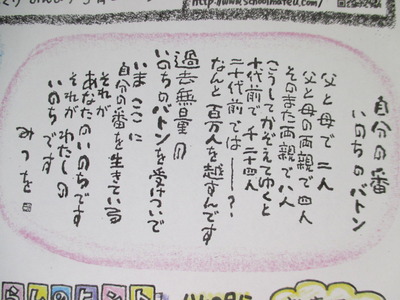 http://www.schoolmateu.com/
自分の番
いのちのバトン
父と母で二人
父と母の両親で四人
そのまた両親で八人
こうしてかぞえてゆくと
十代前で千二十四人
二十代前では―――？
なんと百万人を越すんです
過去無量の
いのちのバトンを受けついで
いまここに
自分の番を生きている
それが
あなたのいのちです
それがわたしの
いのちです
みつを